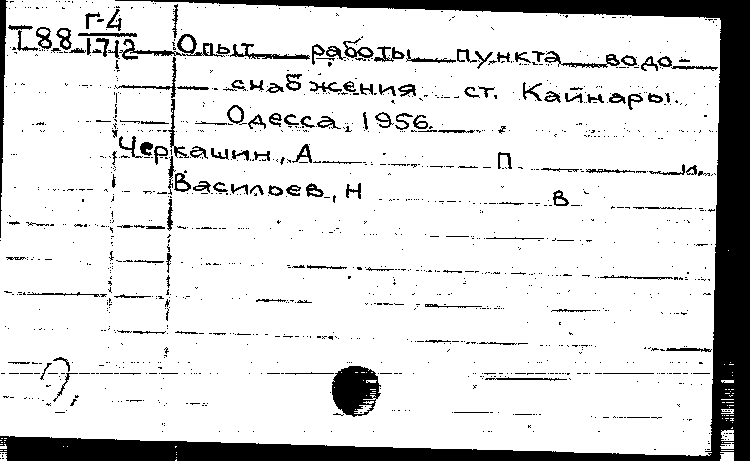 Т88 Г-4/1712 Опыт работы пункта водо-
снабжения ст. Кайнары.
Одесса, 1956.
Черкашин, А П и.
Васильев, Н В
Э.